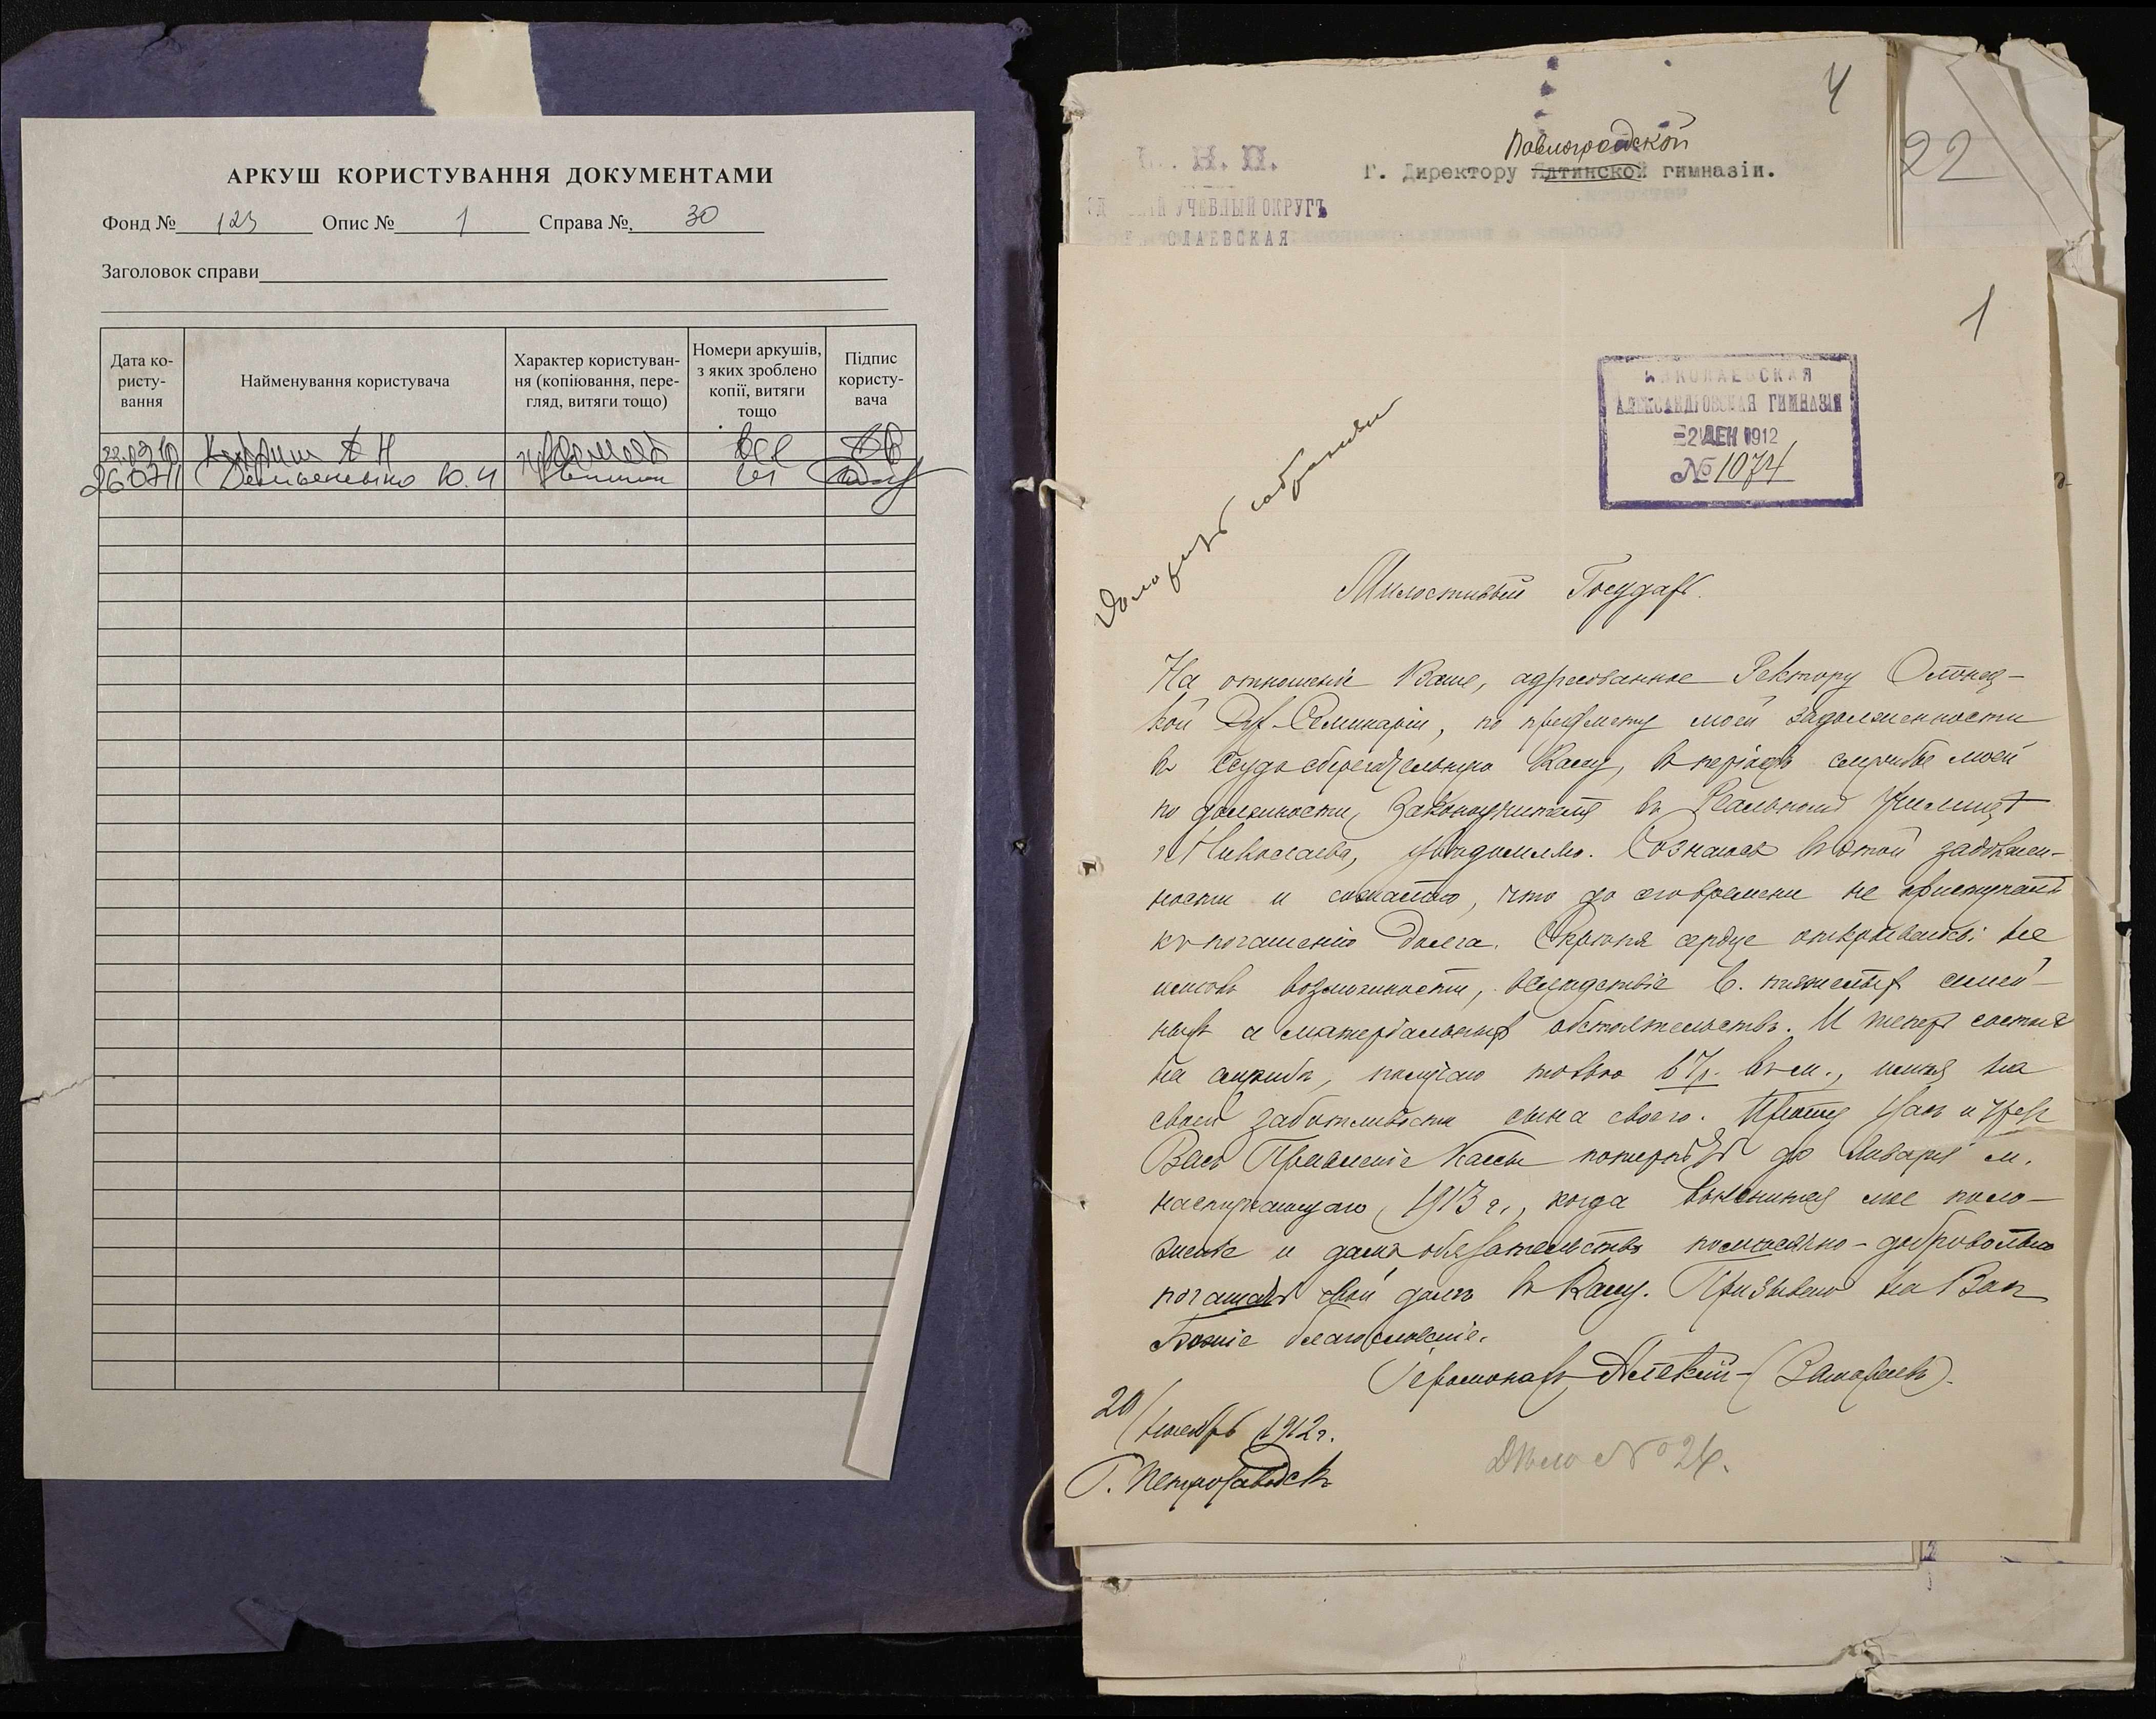 АРКУШ КОРИСТУВАННЯ ДОКУМЕНТАМИ
Фонд № 123 Опис № 1 Справа № 30
Заголовок справи
Дата користування
Найменування користувача
Характер користування (копіювання, перегляд, витяги тощо)
Номери аркушів, з яких зроблено копії, витяги тощо
Підпис користувача
22.09.10
26.07.11 Ю.
4
22
Павлоградской
Г. Директору Ялтинской гимназіи.
Н. П.
УЧЕБНЫЙ ОКРУГЪ
СЛАЕВСКАЯ
1
НИКОЛАЕВСКАЯ
АЛЕКСАНДРОВСКАЯ ГИМНАЗІЯ
2 ДЕК 1912
№ 1074
Доложить собранію
Милостивый Государь.
На отношеніе Ваше, адресованное Ректору Олонец-
кой Дух. Семинаріи, по предмету моей задолженности
въ Ссудосберегательную Кассу, въ періодъ службы моей
по должности Законоучителя въ Реальномъ Училищѣ
г. Николаева, увѣдомляю. Сознаюсь въ этой задолжен-
ности и сожалѣю, что до сего времени не приступалъ
къ погашенію долга. Скрѣпя сердце не
имѣлъ возможности, вслѣдствіе б. тяжелыхъ семей-
ныхъ и матеріальныхъ обстоятельствъ. И теперь состоя
на службѣ, получаю только 67 р. въ м., имѣя на
своей заботливости сына своего. Прошу Васъ и чрезъ
Васъ Правленіе Кассы потерпѣть до Января м.
наступающаго 1913 г., когда выяснится мое поло-
женіе и дамъ обязательство помѣсячно-добровольно
погашать свой долгъ въ Кассу. Призываю на Васъ
Божіе благословеніе.
Іеромонахъ Алексій
20/Ноябрь 1912 г.
Г. Петрозаводскъ
Дѣло № 26.